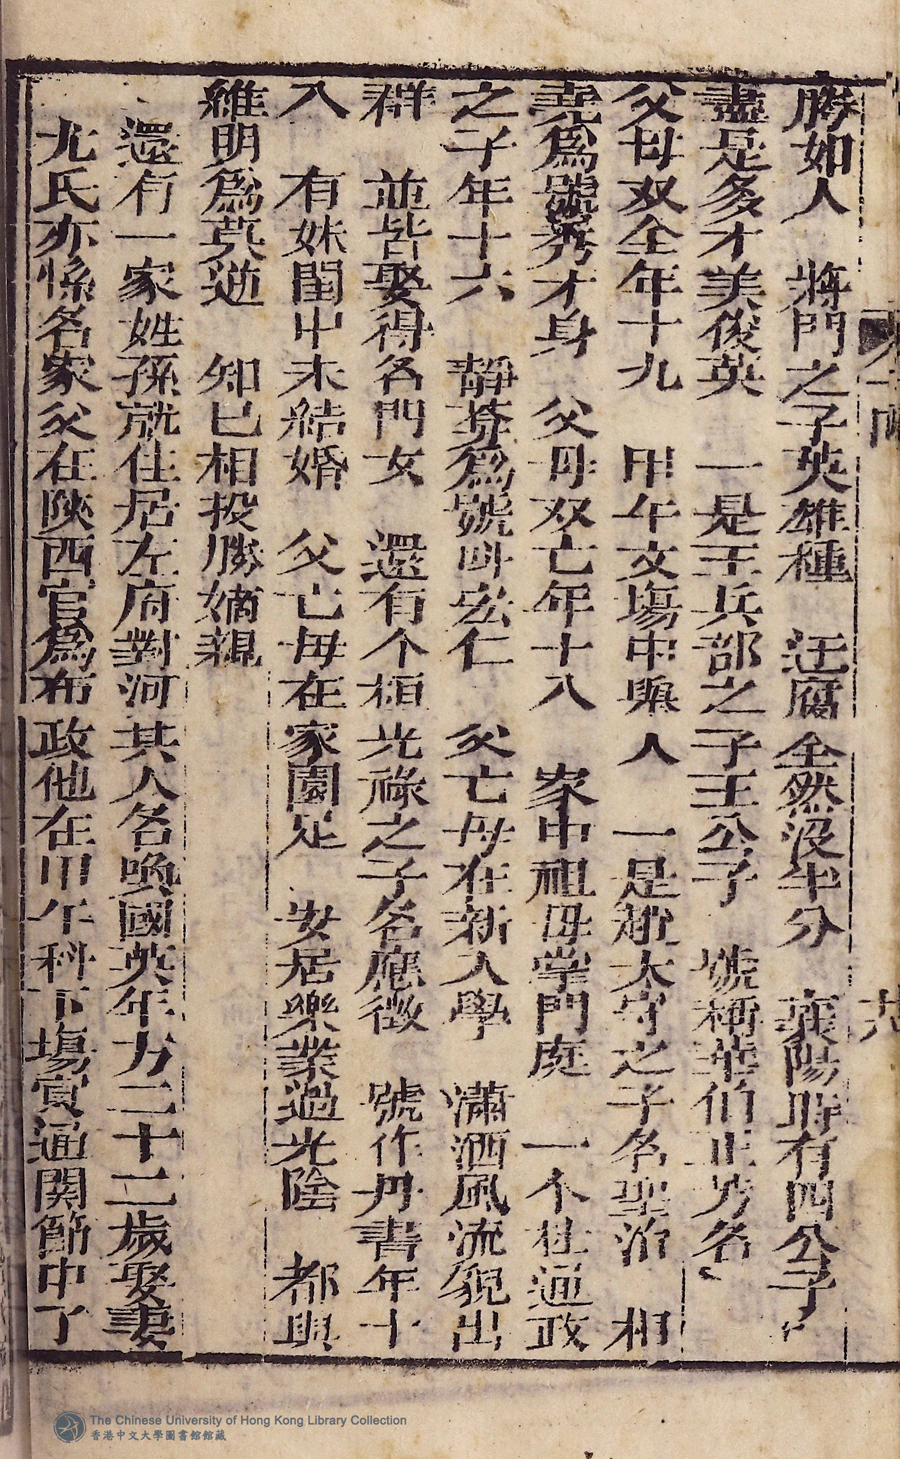 勝如人　蔣門之子英雄種　迂腐全然沒半分　襄陽時有四公子
盡是多才美俊英　一是王兵部之子王公子　號稱華伯正芳名
父母双全年十九　甲午文場中舉人　一是趙太守之子名聖治　相
堯爲號秀才身　父母双亡年十八　家中祖母掌門庭　一个杜通政
之子年十六　靜菴爲號叫宏仁　父亡母在新入學　瀟洒風流貌出
群　並皆娶得名門女　還有个桓光祿之子名應徵　號作丹書年十
八　有妹閨中未結婚　父亡母在家園足　安居樂業過光陰　都與
維明爲莫逆　知已相投勝嫡親
還有一家姓孫就住居左府對河其人名喚國英年方二十二歲娶妻
尤氏亦係名家父在陝西官爲布政他在甲午科下場寅通關節中了
The Chinese University of Hong Kong Library Collection
香港中文大學圖書館館藏